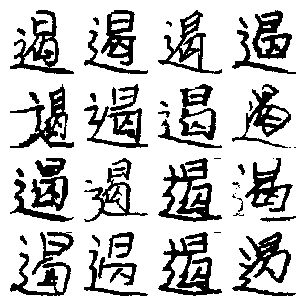 遏遏遏遏
遏遏遏遏
遏遏遏遏
遏遏遏遏